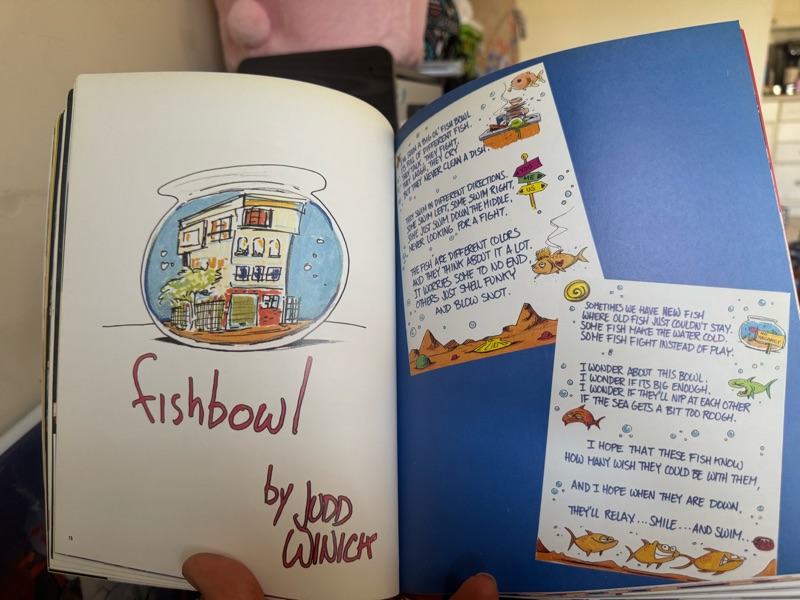 fishbowl
by JUDD
WINICK
18
A BIG OL' FISH BOWL
FULL OF DIFFERENT FISH.
THEY TALK, THEY FIGHT,
THEY LAUGH, THEY CRY
BUT THEY NEVER CLEAN A DISH.
THEY SWIM IN DIFFERENT DIRECTIONS.
SOME SWIM LEFT, SOME SWIM RIGHT,
SOME JUST SWIM DOWN THE MIDDLE,
NEVER LOOKING FOR A FIGHT.
YOU
ME
US
THE FISH ARE DIFFERENT COLORS
AND THEY THINK ABOUT IT A LOT.
IT WORRIES SOME TO NO END,
OTHERS JUST SMELL FUNKY
AND BLOW SNOT.
SOMETIMES WE HAVE NEW FISH
WHERE OLD FISH JUST COULDN'T STAY.
SOME FISH MAKE THE WATER COLD.
SOME FISH FIGHT INSTEAD OF PLAY.
NO
VACANCY
I WONDER ABOUT THIS BOWL.
I WONDER IF ITS BIG ENOUGH.
I WONDER IF THEY'LL NIP AT EACH OTHER
IF THE SEA GETS A BIT TOO ROUGH.
I HOPE THAT THESE FISH KNOW
HOW MANY WISH THEY COULD BE WITH THEM,
AND I HOPE WHEN THEY ARE DOWN,
THEY'LL RELAX...SMILE...AND SWIM...